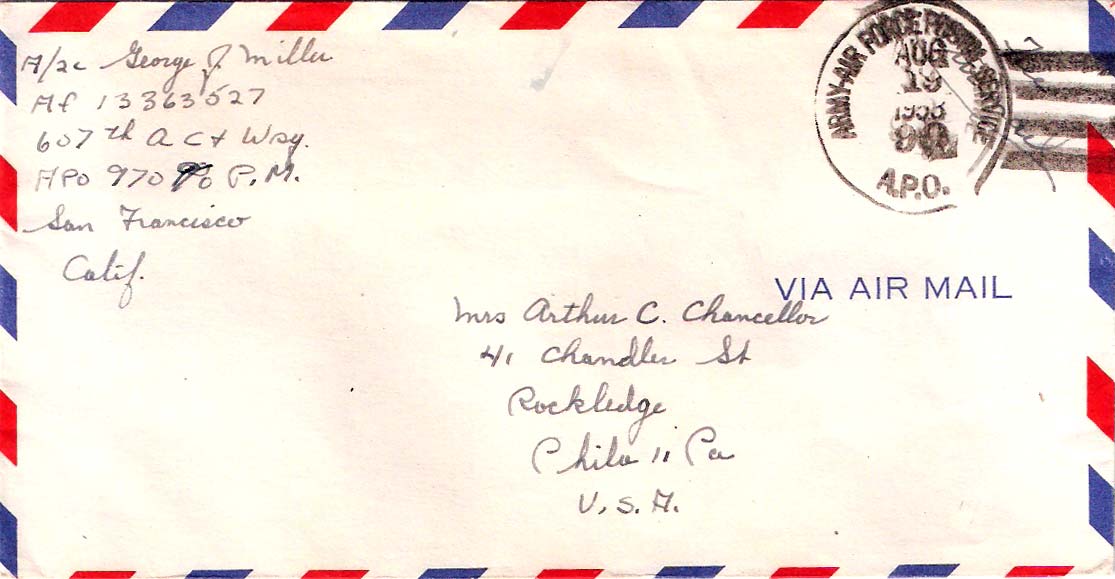 A/2c George J. Miller
Af 13363527
607th A C & W Sq.
APO 970 % P.M.
San Francisco
Calif.
ARMY-AIR FORCE POSTAL SERVICE
AUG
19
1953
A.P.O.
VIA AIR MAIL
Mrs Arthur C. Chancellor
41 Chandler St
Rockledge
Phila 11 Pa
U.S.A.